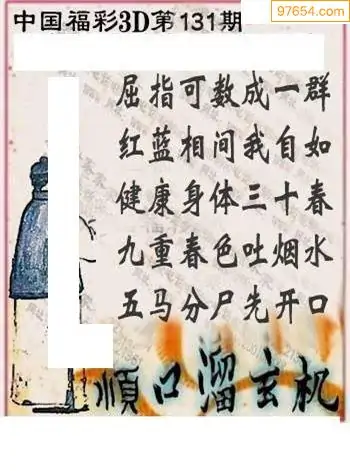 中国福彩3D第131期
97654.com
屈指可数成一群
红蓝相间我自如
健康身体三十春
九重春色吐烟水
五马分尸先开口
顺口溜玄机